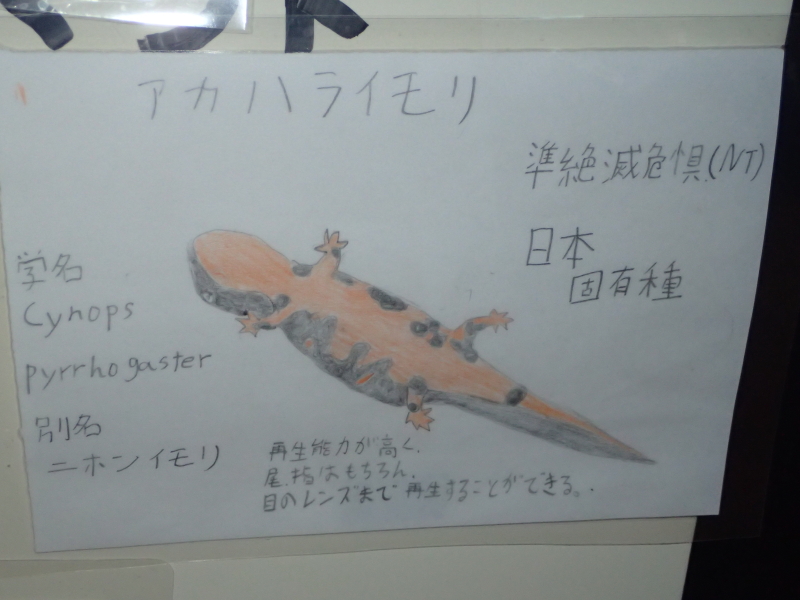 アカハライモリ
準絶滅危惧(NT)
日本
固有種
学名
Cynops
pyrrhogaster
別名
ニホンイモリ
再生能力が高く、
尾、指はもちろん、
目のレンズまで再生することができる。